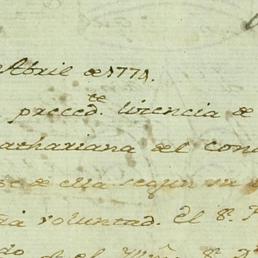 Abril de 1771.
preced.te licencia de
achariana del con
de ella segun su
voluntad. el S.r